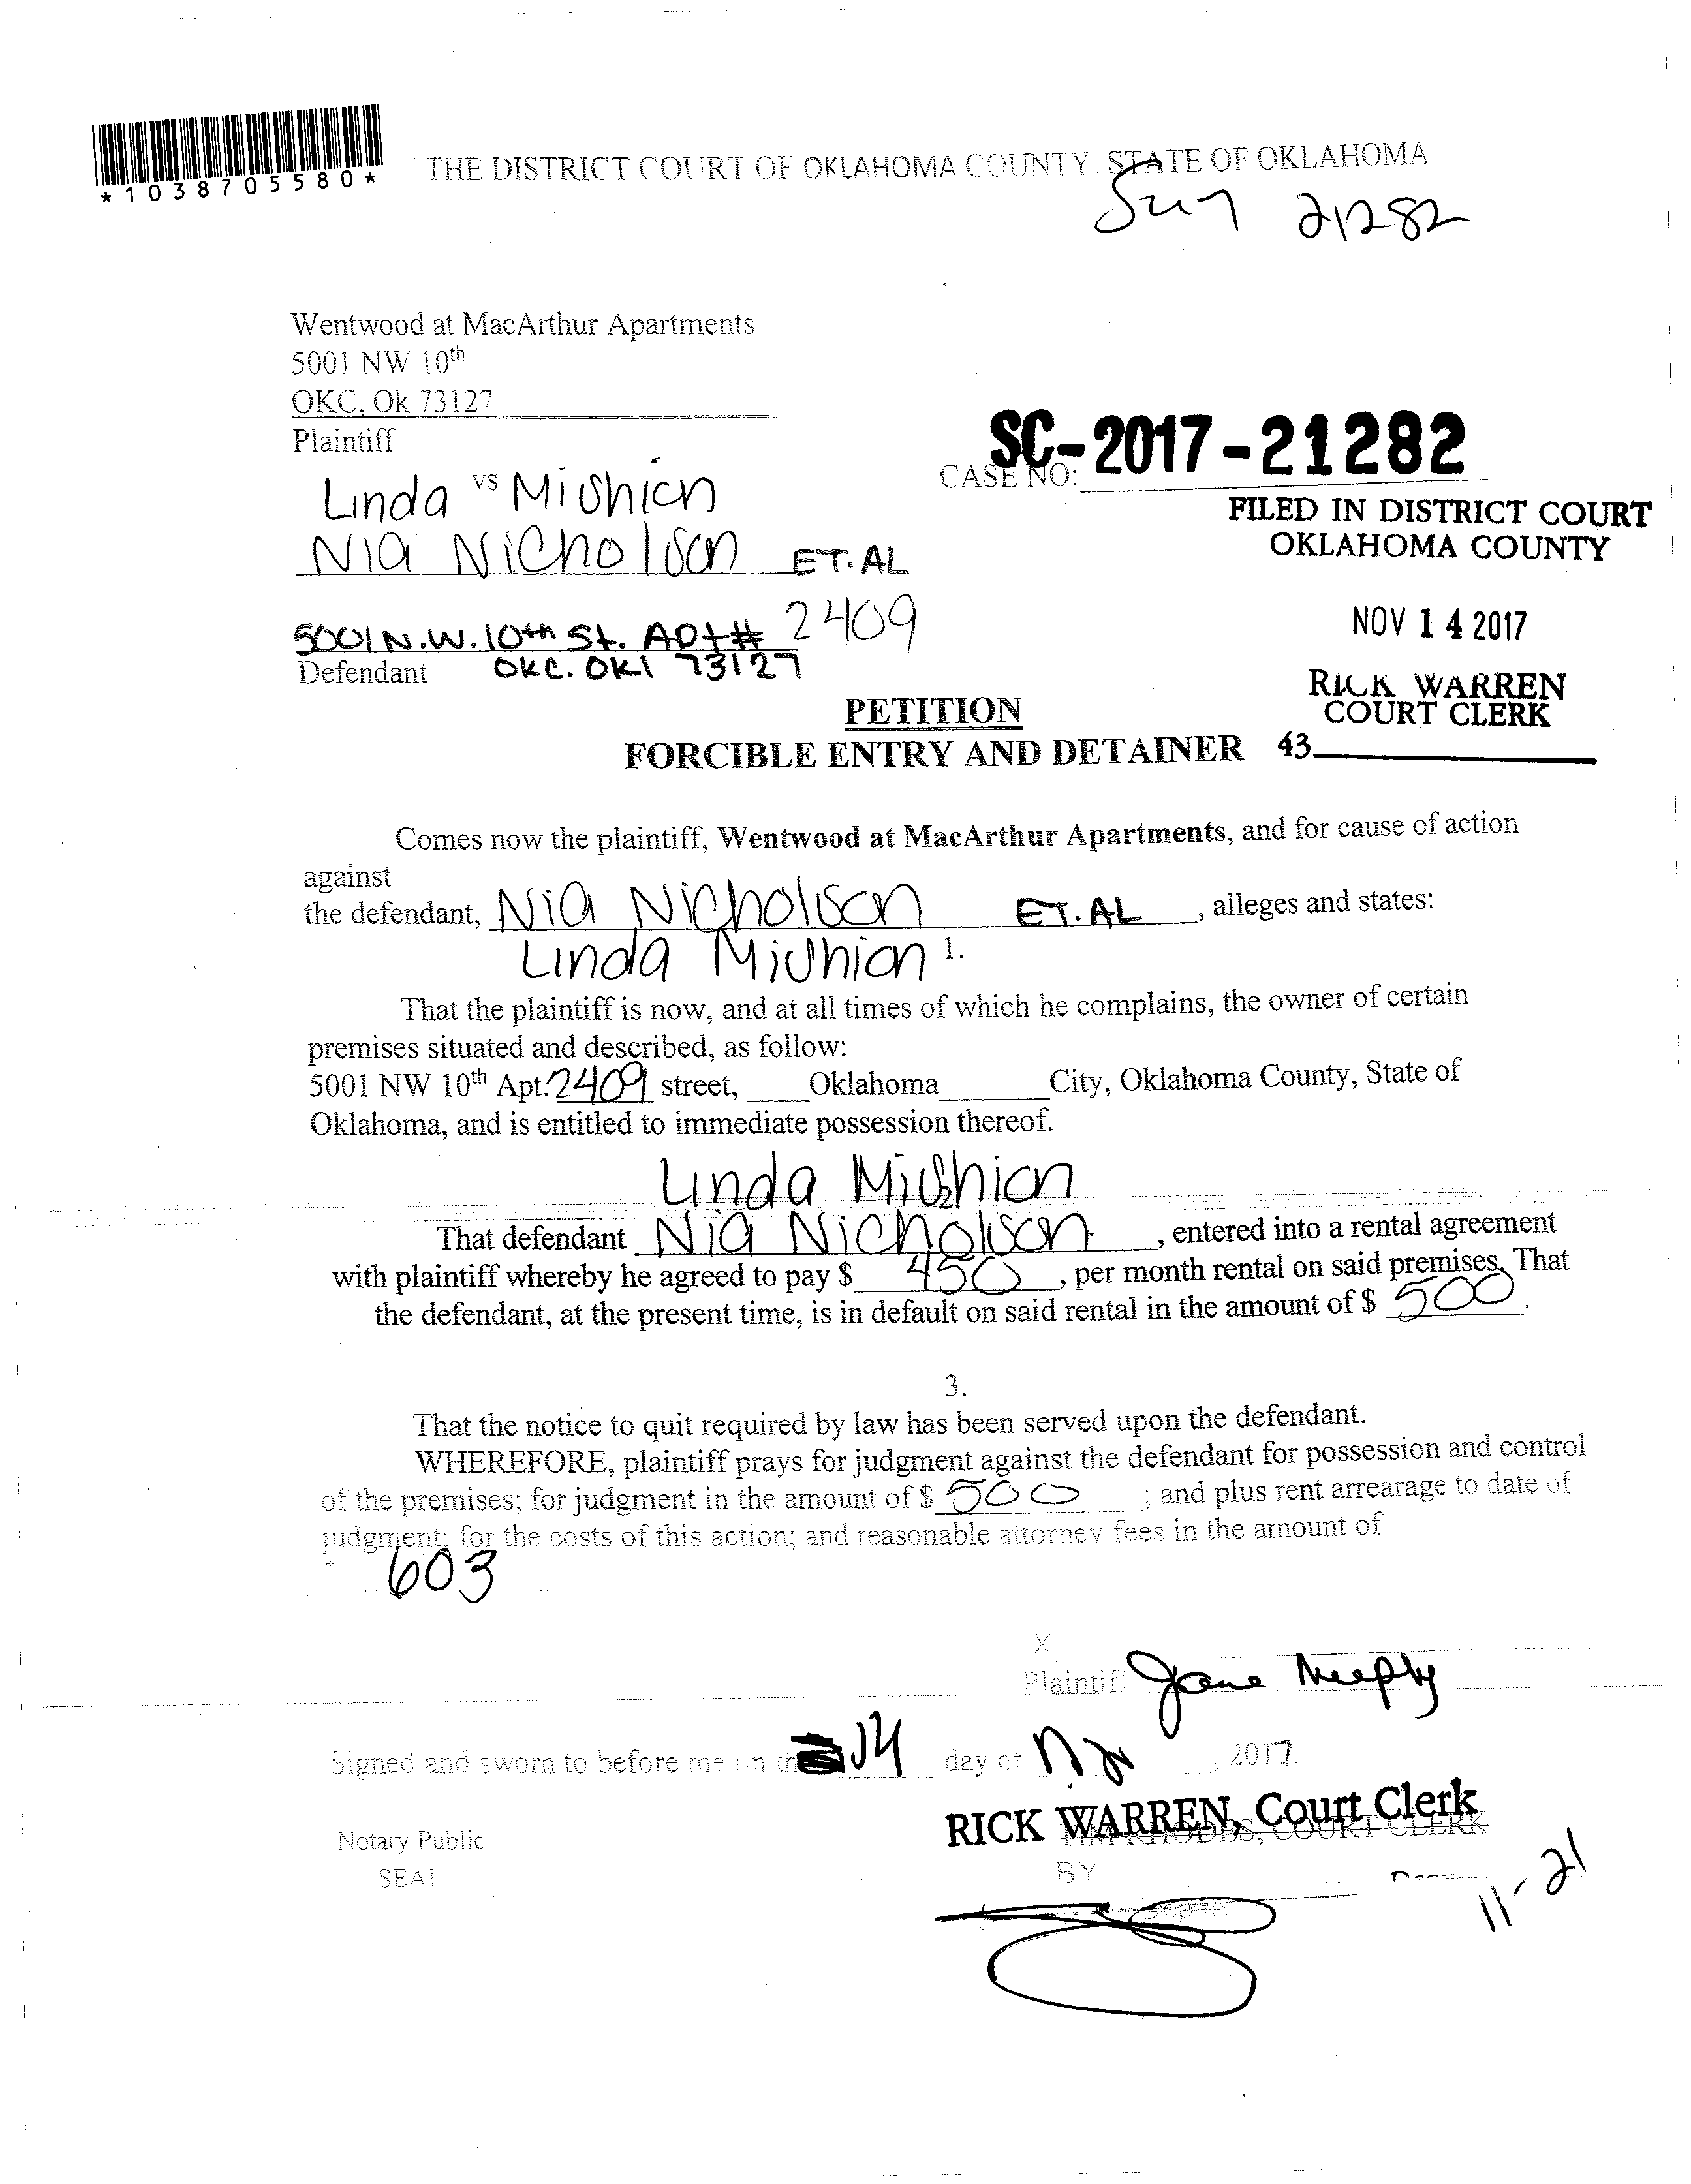 *1038705580*
THE DISTRICT COURT OF OKLAHOMA COUNTY, STATE OF OKLAHOMA
21282
Wentwood at MacArthur Apartments
5001 NW 10th
OKC, Ok 73127
Plaintiff
SC-2017-21282
CASE NO:
vs
Linda
FILED IN DISTRICT COURT
OKLAHOMA COUNTY
Nia Nicholson ET.AL
NOV 14 2017
5001 N.W. 10th St. APt# 2409
Defendant OKC. OKl 73127
RICK WARREN
COURT CLERK
PETITION
FORCIBLE ENTRY AND DETAINER 43
Comes now the plaintiff, Wentwood at MacArthur Apartments, and for cause of action
against
the defendant, Nia Nicholson ET.AL, alleges and states:
Linda
1.
That the plaintiff is now, and at all times of which he complains, the owner of certain
premises situated and described, as follow:
5001 NW 10th Apt. 2409 street, Oklahoma City, Oklahoma County, State of
Oklahoma, and is entitled to immediate possession thereof.
Linda
That defendant Nia Nicholson, entered into a rental agreement
with plaintiff whereby he agreed to pay $ 450, per month rental on said premises. That
the defendant, at the present time, is in default on said rental in the amount of $ 500.
3.
That the notice to quit required by law has been served upon the defendant.
WHEREFORE, plaintiff prays for judgment against the defendant for possession and control
of the premises; for judgment in the amount of $ 500; and plus rent arrearage to date of
judgment; for the costs of this action; and reasonable attorney fees in the amount of
603
X
Plaintiff Jane
Signed and sworn to before me on the 14 day of Nov, 2017.
RICK WARREN, Court Clerk
TIM RHODES, COURT CLERK
Notary Public
SEAL
BY
11-21